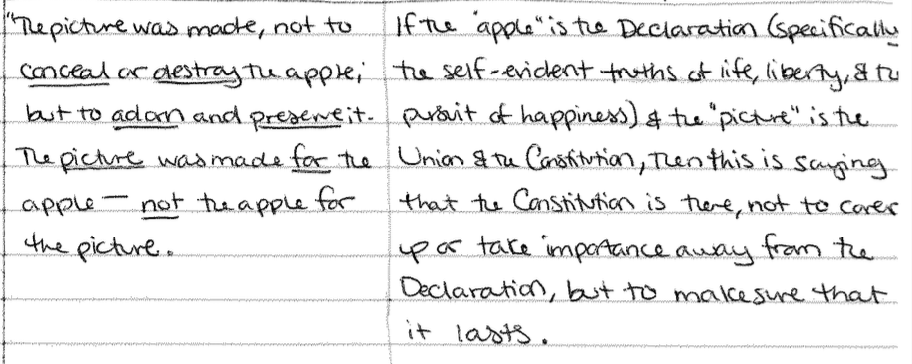 "The picture was made, not to
conceal or destroy the apple;
but to adorn and preserve it.
The picture was made for the
apple — not the apple for
the picture.
If the "apple" is the Declaration (specifically
the self-evident truths of life, liberty, & the
pursuit of happiness) & the "picture" is the
Union & the Constitution, then this is saying
that the Constitution is there, not to cover
up or take importance away from the
Declaration, but to make sure that
it lasts.